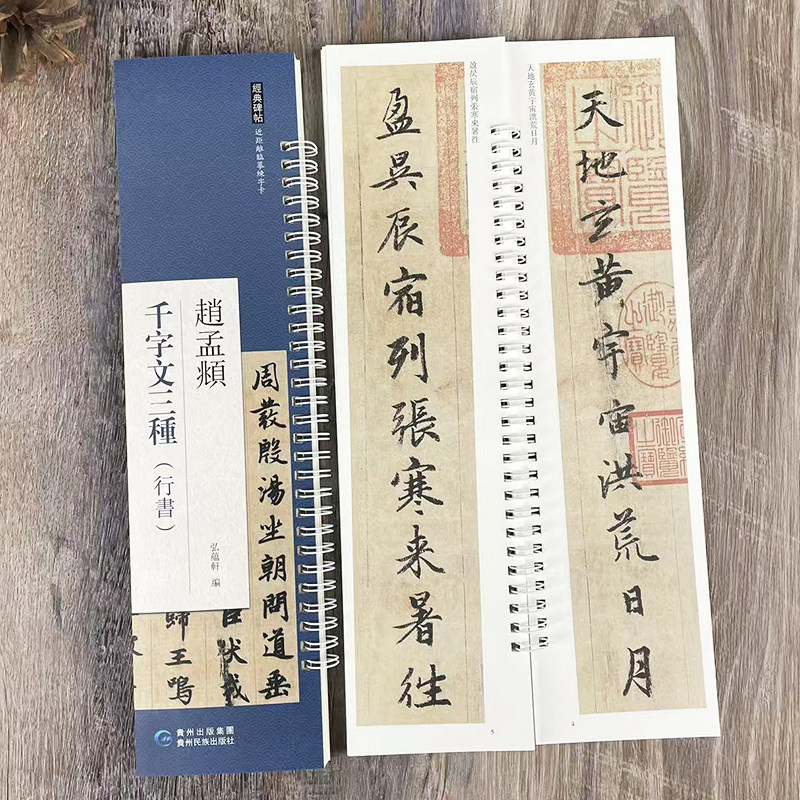 經典碑帖
近距離臨摹練字卡
趙孟頫
千字文三種（行書）
弘蘊軒 編
周發殷湯坐朝問道垂
臣伏戎
歸王鳴
貴州出版集團
貴州民族出版社
天地玄黃宇宙洪荒日月
天地玄黃宇宙洪荒日月
4
盈昃辰宿列張寒來暑往
盈昃辰宿列張寒来暑往
5